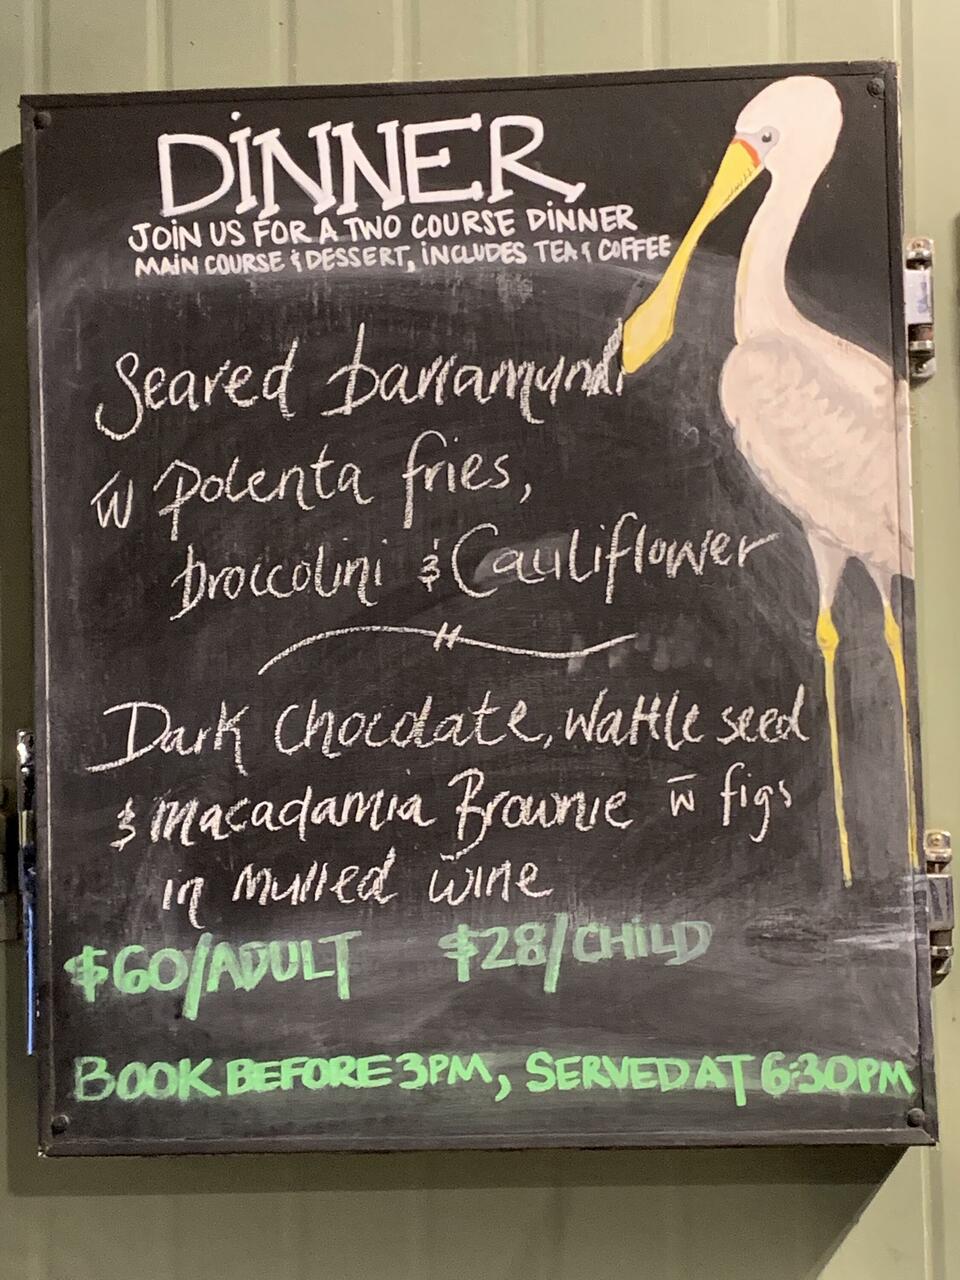 DINNER
JOIN US FOR A TWO COURSE DINNER
MAIN COURSE & DESSERT, INCLUDES TEA & COFFEE
Seared barramundi
w Polenta fries,
broccolini & Cauliflower
Dark Chocolate, wattle seed
& Macadamia Brownie w figs
in mulled wine
$60/ADULT $28/CHILD
BOOK BEFORE 3PM, SERVED AT 6:30PM